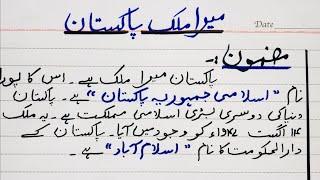 میرا ملک پاکستان
Date
مضمون:۔
پاکستان میرا ملک ہے۔ اس کا پورا
نام "اسلامی جمہوریہ پاکستان" ہے۔ پاکستان
دنیا کی دوسری بڑی اسلامی مملکت ہے۔ یہ ملک
۱۴ اگست ۱۹۴۷ کو وجود میں آیا۔ پاکستان کے
دارالحکومت کا نام "اسلام آباد" ہے۔